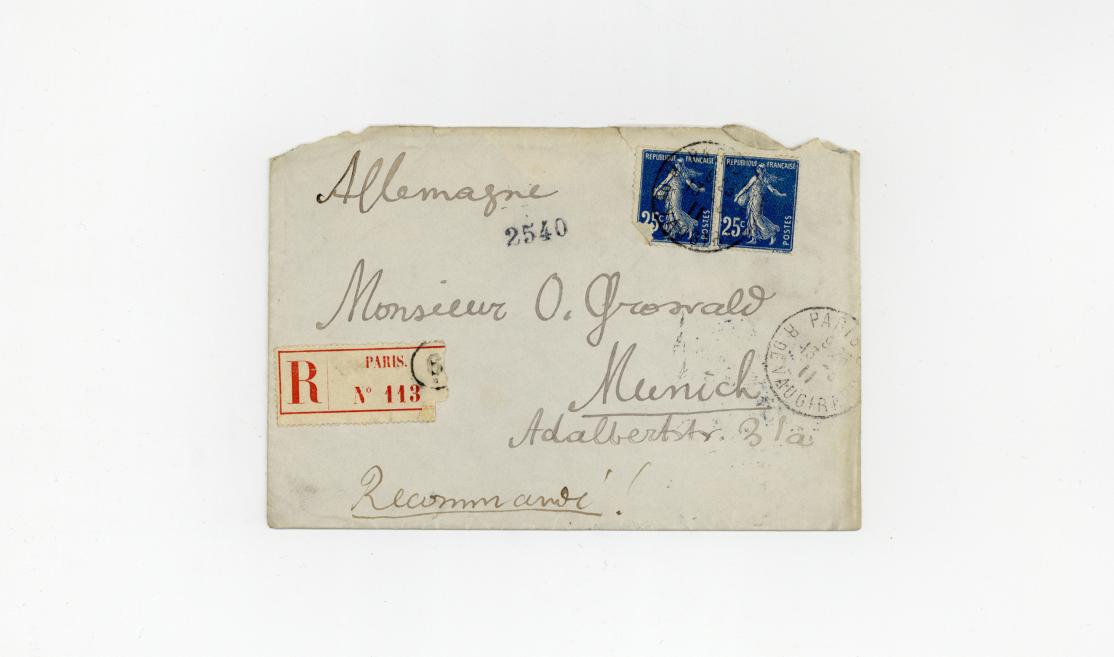 Allemagne
2540
REPUBLIQUE FRANÇAISE
25c
POSTES
REPUBLIQUE FRANÇAISE
25c
POSTES
Monsieur O. Grosvald
Munich
Adalbertstr. 31a
R
PARIS.
N° 113
PARIS
R. DE VAUGIRA
11
Recommandé!